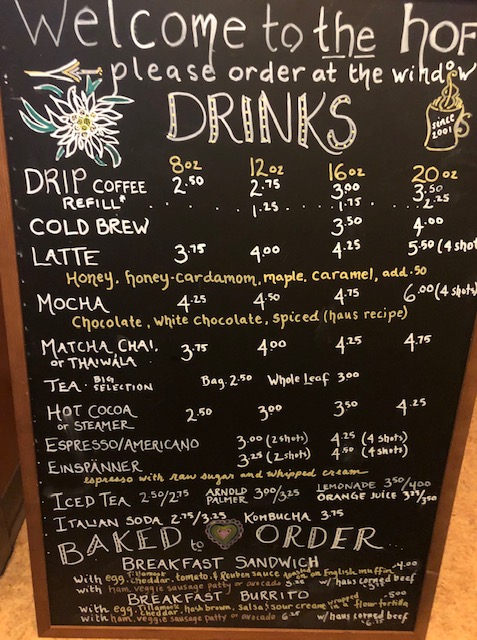 Welcome to the hof
please order at the window
SINCE 2001
DRINKS
8oz 12oz 16oz 20oz
DRIP COFFEE 2.50 2.75 3.00 3.50
REFILL* 1.25 1.75 2.25
COLD BREW 3.50 4.00
LATTE 3.75 4.00 4.25 5.50 (4 shot
Honey, honey-cardamom, maple, caramel, add .50
MOCHA 4.25 4.50 4.75 6.00 (4 shots)
Chocolate, white chocolate, spiced (haus recipe)
MATCHA, CHAI, or THAIWALA 3.75 4.00 4.25 4.75
TEA - BIG SELECTION Bag. 2.50 Whole Leaf 3.00
HOT COCOA or STEAMER 2.50 3.00 3.50 4.25
ESPRESSO/AMERICANO 3.00 (2 shots) 4.25 (4 shots)
EINSPÄNNER 3.25 (2 shots) 4.50 (4 shots)
espresso with raw sugar and whipped cream
ICED TEA 2.50/2.75 ARNOLD PALMER 3.00/3.25 LEMONADE 3.50/4.00
ORANGE JUICE 3.25/3.50
ITALIAN SODA 2.75/3.25 KOMBUCHA 3.75
BAKED to ORDER
BREAKFAST SANDWICH
with egg, Tillamook cheddar, tomato, & Reuben sauce on English muffin 4.00
with ham, veggie sausage patty or avocado w/ haus corned beef
BREAKFAST BURRITO 5.00
with egg, Tillamook cheddar, hash brown, salsa & sour cream wrapped in a flour tortilla
with ham, veggie sausage patty or avocado w/ haus corned beef